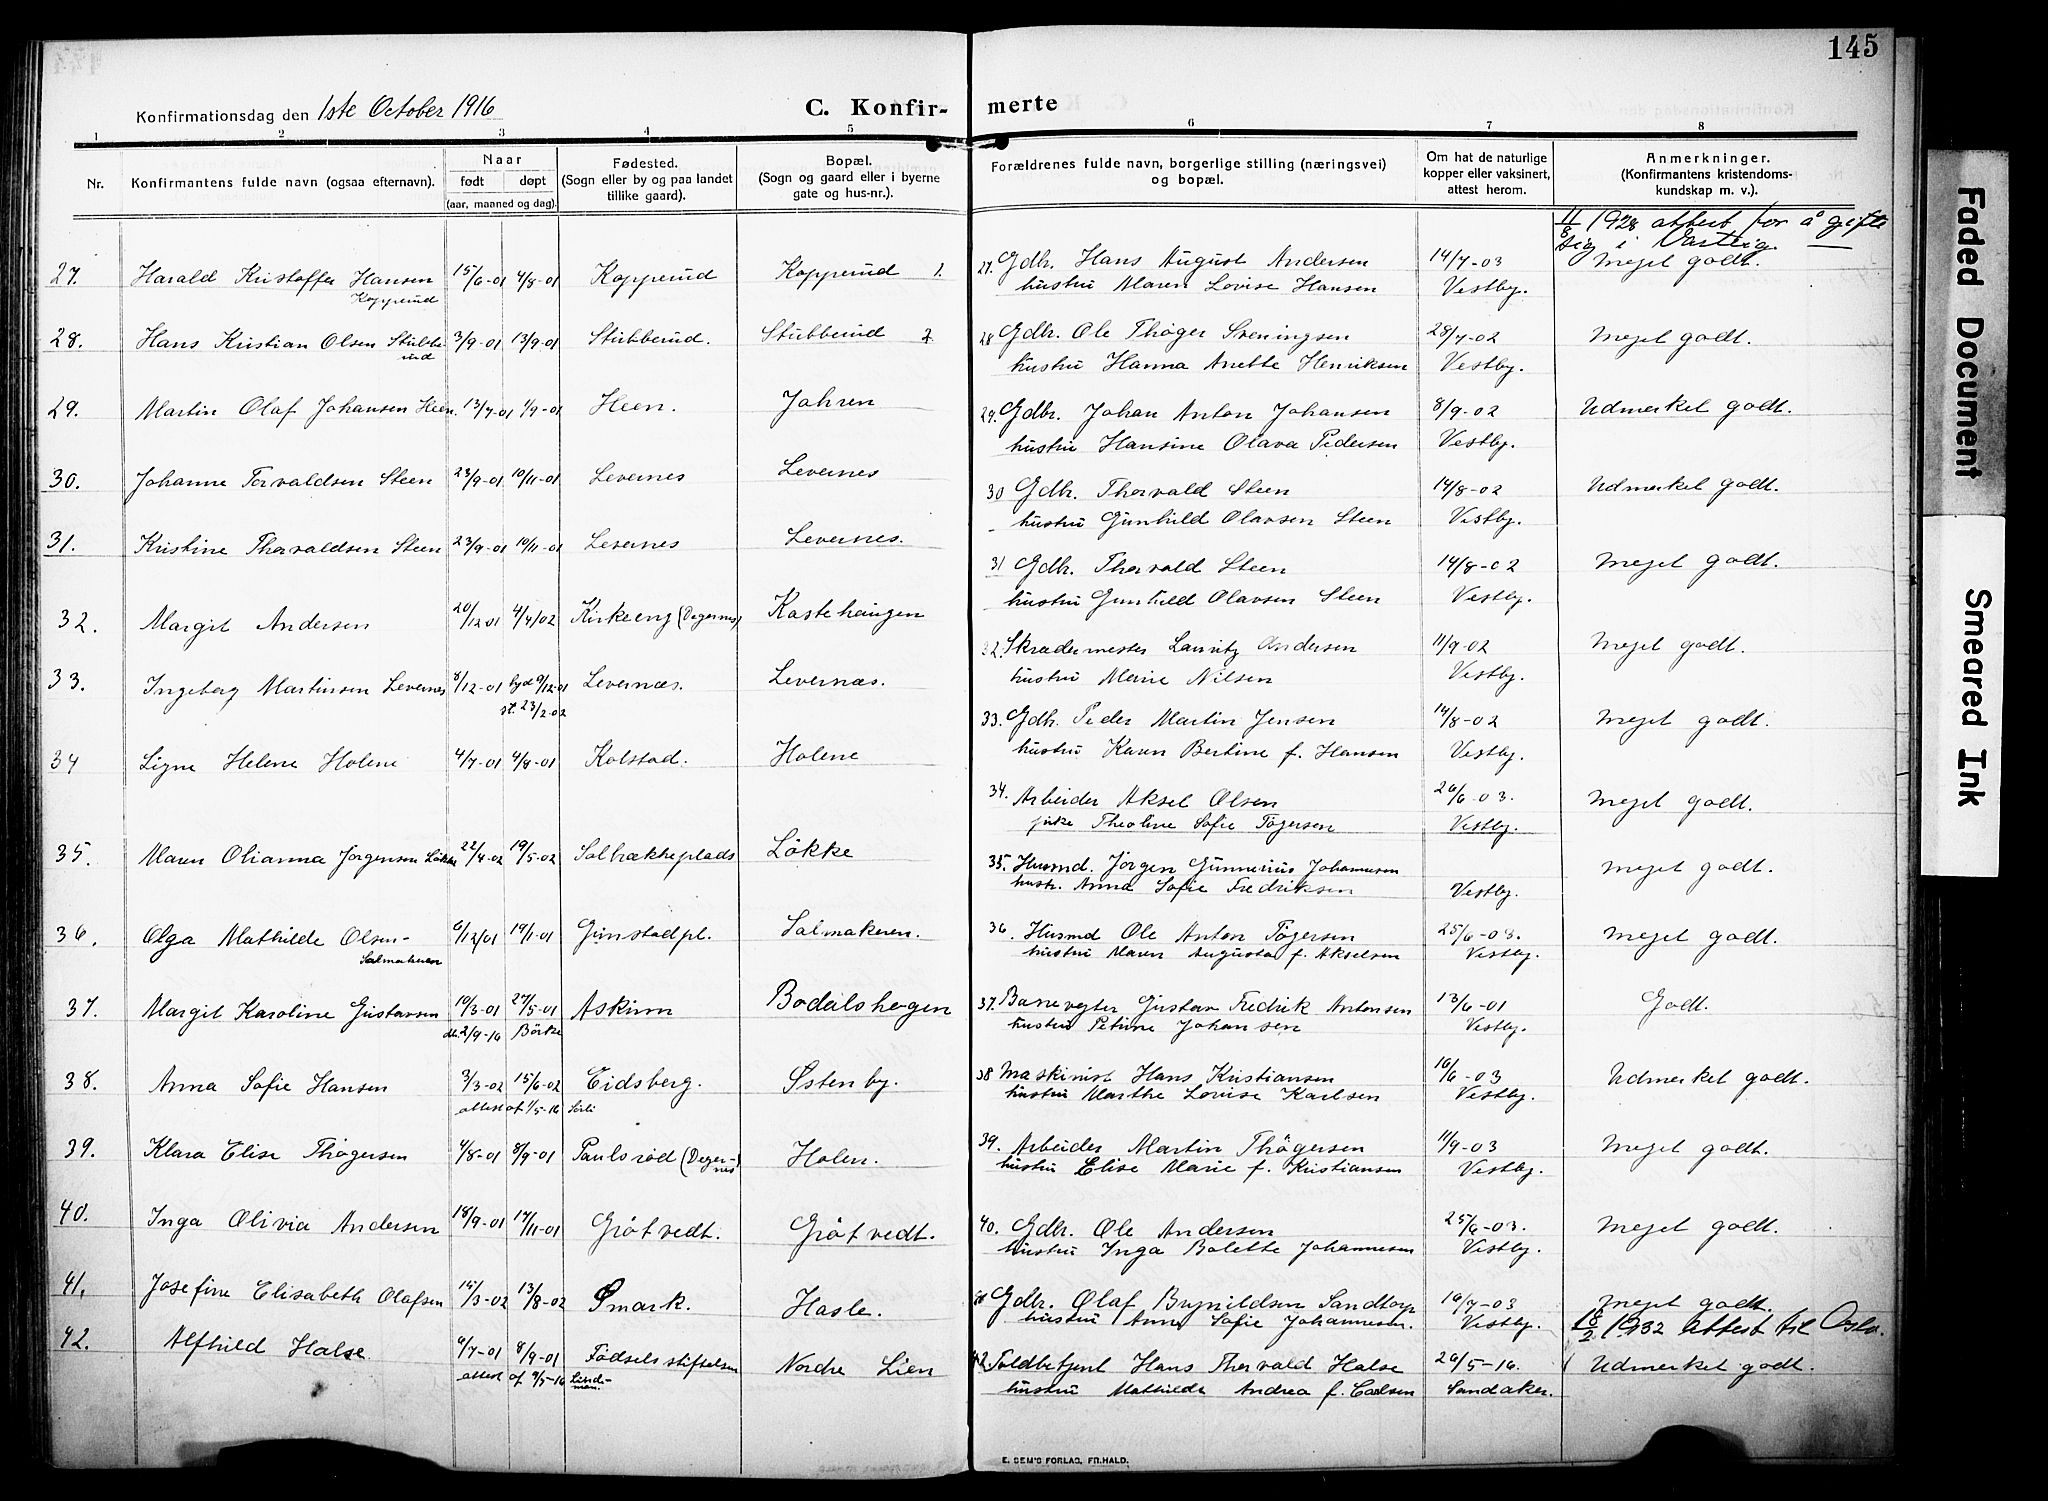 145
Konfirmationsdag den 1ste October 1916
C. Konfir-merte
1 2 3 4 5 6 7 8
Nr.
Konfirmantens fulde navn (ogsaa efternavn).
Naar
født døpt
(aar, maaned og dag).
Fødested.
(Sogn eller by og paa landet
tillike gaard).
Bopæl.
(Sogn og gaard eller i byerne
gate og hus-nr.).
Forældrenes fulde navn, borgerlige stilling (næringsvei)
og bopæl.
Om hat de naturlige
kopper eller vaksinert,
attest herom.
Anmerkninger.
(Konfirmantens kristendoms-
kundskap m. v.).
11/8 1928 attest for å gifte
sig i Varteig.
27. Harald Kristoffer Hansen 15/6-01 4/8-01 Kopperud Kopperud 1. 27. Gdbr. Hans August Andersen 14/7-03 Meget godt.
Kopperud hustru Maren Lovise Hansen Vestby.
28. Hans Kristian Olsen Stubbe 3/9-01 13/9-01 Stubberud. Stubberud 2. 28 Gdbr. Ole Thøger Sveningsen 28/7-02 Meget godt.
rud hustru Hanna Anette Henriksen Vestby.
29. Martin Olaf Johansen Heen. 13/7-01 1/9-01 Heen. Jahren 29. Gdbr. Johan Anton Johansen 8/9-02 Udmerket godt.
hustru Hansine Olava Pedersen Vestby.
30. Johanne Torvaldsen Steen 23/9-01 10/11-01 Levernes Levernes 30 Gdbr. Thorvald Steen 14/8-02 Udmerket godt.
hustru Gunhild Olavsen Steen Vestby.
31. Kristine Thorvaldsen Steen 23/9-01 10/11-01 Levernes Levernes. 31 Gdbr. Thorvald Steen 14/8-02 Meget godt.
hustru Gunhild Olavsen Steen Vestby.
32. Margit Andersen 20/12-01 4/4/02 Kirkeeng (Degernes) Kastehaugen 32. Skrædermester Lauritz Andersen 11/9-02 Meget godt.
hustru Marie Nilsen Vestby.
33. Ingeborg Martinsen Levernes 8/12-01 hjd 9/12-01 Levernæs. Levernæs. 33. Gdbr. Peder Martin Jensen 14/8-02 Meget godt.
st. 23/2-02 hustru Karen Bertine f. Hansen Vestby.
34 Signe Helene Holene 4/7-01 4/8-01 Kolstad. Holene 34. Arbeider Aksel Olsen 26/6-03. Meget godt.
pike Theoline Sofie Tøgersen Vestby.
35. Maren Olianna Jørgensen Løkke 22/4-02 19/5-02 Solbækkeplads Løkke 35. Husmd. Jørgen Gunnerius Johannesen Meget godt.
hustr. Anna Sofie Fredriksen Vestby.
36. Olga Mathilde Olsen- 6/12/01 19/1-01 Grimstadpl. Salmakeren. 36. Husmd Ole Anton Tøgersen 25/6-03. Meget godt.
Salmakeren hustru Maren Augusta f. Akselsen Vestby.
37. Margit Karoline Gustavsen 10/3-01 27/5-01 Askim Bodalshogen 37. Banevogter Gustav Fredrik Antonsen 13/6-01 Godt.
db. 2/9-16 Børke hustru Petrine Johansen Vestby.
38. Anna Sofie Hansen 3/3-02 15/6-02 Eidsberg. Østenby. 38 Maskinist Hans Kristiansen 16/6-03 Udmerket godt.
attest af 1/5-16 hustru Marthe Lovise Karlsen Vestby.
39. Klara Elise Thøgersen 4/8-01 8/9-01 Paulsrød (Deger-nes) Holen. 39. Arbeider Martin Thøgersen 11/9-03 Meget godt.
hustru Elise Marie f. Kristiansen Vestby.
40. Inga Olivia Andersen 18/9-01 17/11-01 Grøtvedt. Grøtvedt. 40. Gdbr. Ole Andersen 25/6-03. Meget godt.
hustru Inga Bolette Johannesen Vestby.
41. Josefine Elisabeth Olafsen 15/3-02 13/8-02 Ømark. Hasle. Gdbr. Olaf Brynildsen Sandtorp 16/7-03 Meget godt.
hustru Anna Sofie Johannesen. Vestby. 18/2 1932 Attest til Oslo.
42. Alfhild Halse. 6/7-01 8/9-01 Fødselsstiftelsen Nordre Lien 42 Toldbetjent Hans Thorvald Halse 26/5-16. Udmerket godt.
attest af 9/5-16 hustru Mathilde Andrea f. Carlsen Sandaker.
E. SEM'S FORLAG, FR.HALD.
Faded Document
Smeared Ink